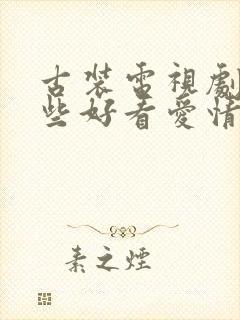 古裝電視劇
些好看愛情
素之煙